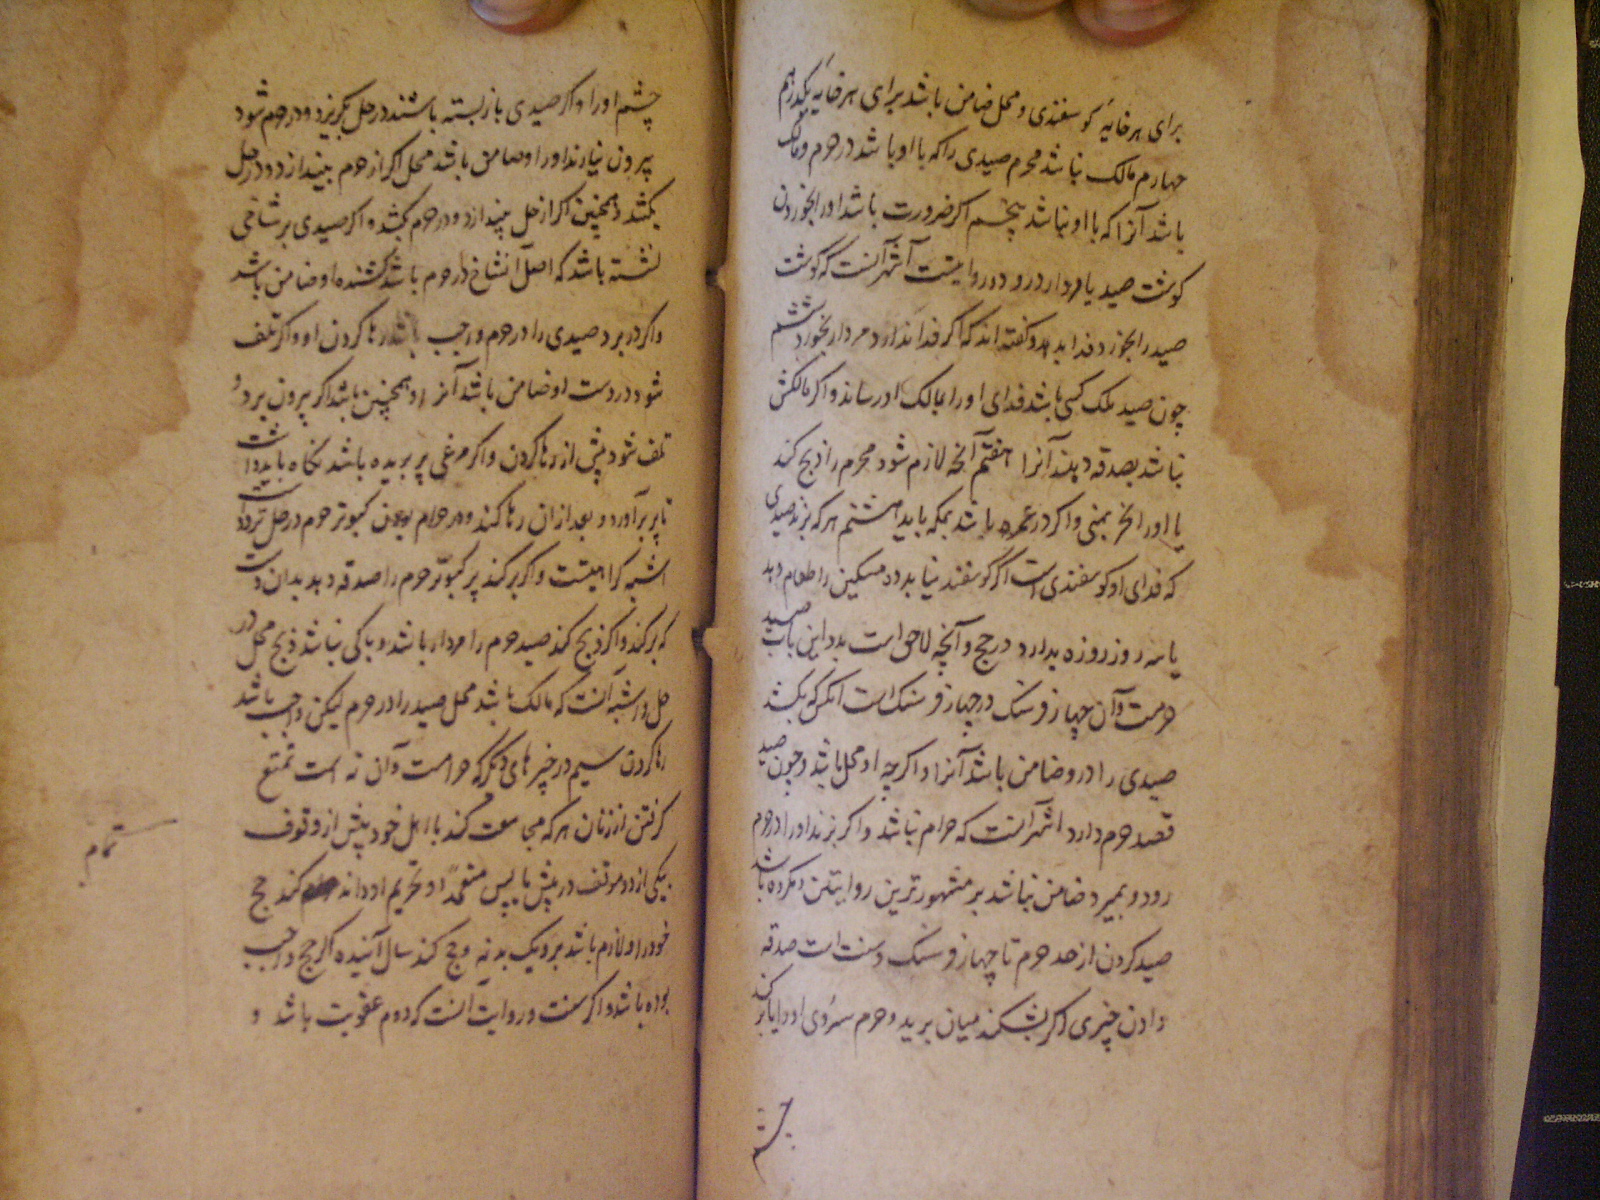 برای هر خایهٔ کوسفندی و محل ضامن باشد برای هر خایهٔ یکدرهم
چهارم مالک نباشد محرم صیدی را که با او باشد در حرم و مالک
باشد آنرا که با او نباشد پنجم اکر ضرورت باشد او را بخوردن
کوشت صید یا مردار درو دو روایتست اشهر آنست که کوشت
صید را بخورد و فدا بدهد و کفته اند که اکر فدا ندارد مردار بخورد ششم
چون صید ملک کسی باشد فدای او را بمالک او رساند و اکر مالکش
نباشد بصدقه دهند آنرا هفتم آنچه لازم شود محرم را ذبح کند
یا او را نحر بمنی و اکر در عمره باشد بمکه باید هشتم هر که بزند صیدی
که فدای او کوسفندی است اکر کوسفند نیابد ده مسکین را طعام دهد
یا سه روز روزه بدارد در حج و آنچه لاحق است بدین باب صید
حرمست و آن چهار فرسنک در چهار فرسنک است آنکس که بکشد
صیدی را درو ضامن باشد آنرا و اکرچه او محل باشد و چون صید
قصد حرم دارد اشهر آنست که حرام نباشد و اکر بزند او را در حرم
رود و بمیرد ضامن نباشد بر مشهورترین روایتین و مکروه باشد
صید کردن از حد حرم تا چهار فرسنک و سنت است صدقه
دادن چیزی اکر بشکند میان برید و حرم سروی او را یا بر کند
چشم
چشم او را و اکر صیدی باز بسته باشند در حل بکریزد و در حرم شود
بیرون نیارند او را و ضامن باشد محل اکر از حرم بیندازد و در حل
بکشد و همچنین اکر از حل بیندازد و در حرم بکشد و اکر صیدی بر شاخی
نشسته باشد که اصل آنشاخ در حرم باشد کشنده او ضامن باشد
و اکر در برد صیدی را در حرم واجب باشد رها کردن او و اکر تلف
شود در دست او ضامن باشد آنرا و همچنین باشد اکر بیرون برد و
تلف شود پیش از رها کردن و اکر مرغی پر بریده باشد نکاه باید داشت
تا پر برآورد و بعد از ان رها کند و در حرام بودن کبوتر حرم در حل تردد است
اشبه کراهیتست و اکر بر کند پر کبوتر حرم را صدقه دهد بدان دست
که بر کند و اکر ذبح کند صید حرم را مردار باشد و باکی نباشد ذبح محل در
حل و اشبه آنست که مالک باشد محل صید را در حرم لیکن واجب باشد
رها کردن سیم در چیزهای دیکر که حرامست و آن نه است تمتع
کرفتن از زنان هر که مجامعت کند با اهل خود پیش از وقوف
بیکی از دو موقف در پیش یا پس متعمدا و تحریم او داند تمام کند حج
خود را و لازم باشد برو یک بدنه و حج کند سال آینده اکر حج واجب
بوده باشد و اکر سنت و روایت آنست که دوم عقوبت باشد و
تمام